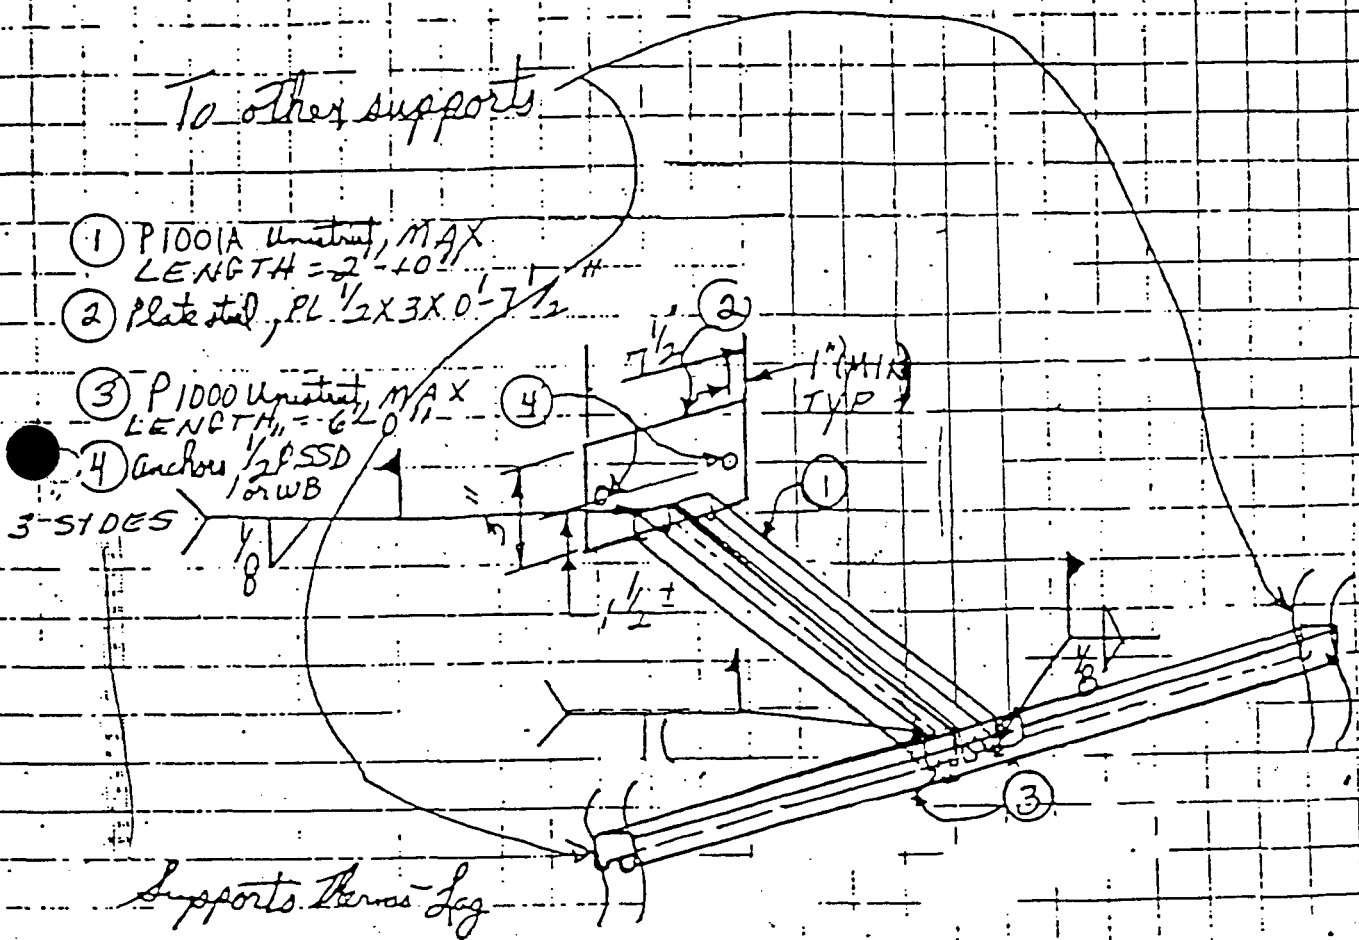 To other supports
① P1001A Unistrut, MAX
LENGTH = 2'-10"
② Plate steel, PL 1/2 X 3 X 0'-7 1/2"
③ P1000 Unistrut, MAX
LENGTH = 6'-0"
④ Anchors 1/2"ø SSD
or WB
3-SIDES
1/8
②
7 1/2"
1" (MIN)
TYP
④
①
1 1/2 ±
1/8
③
Supports Thermo-Lag